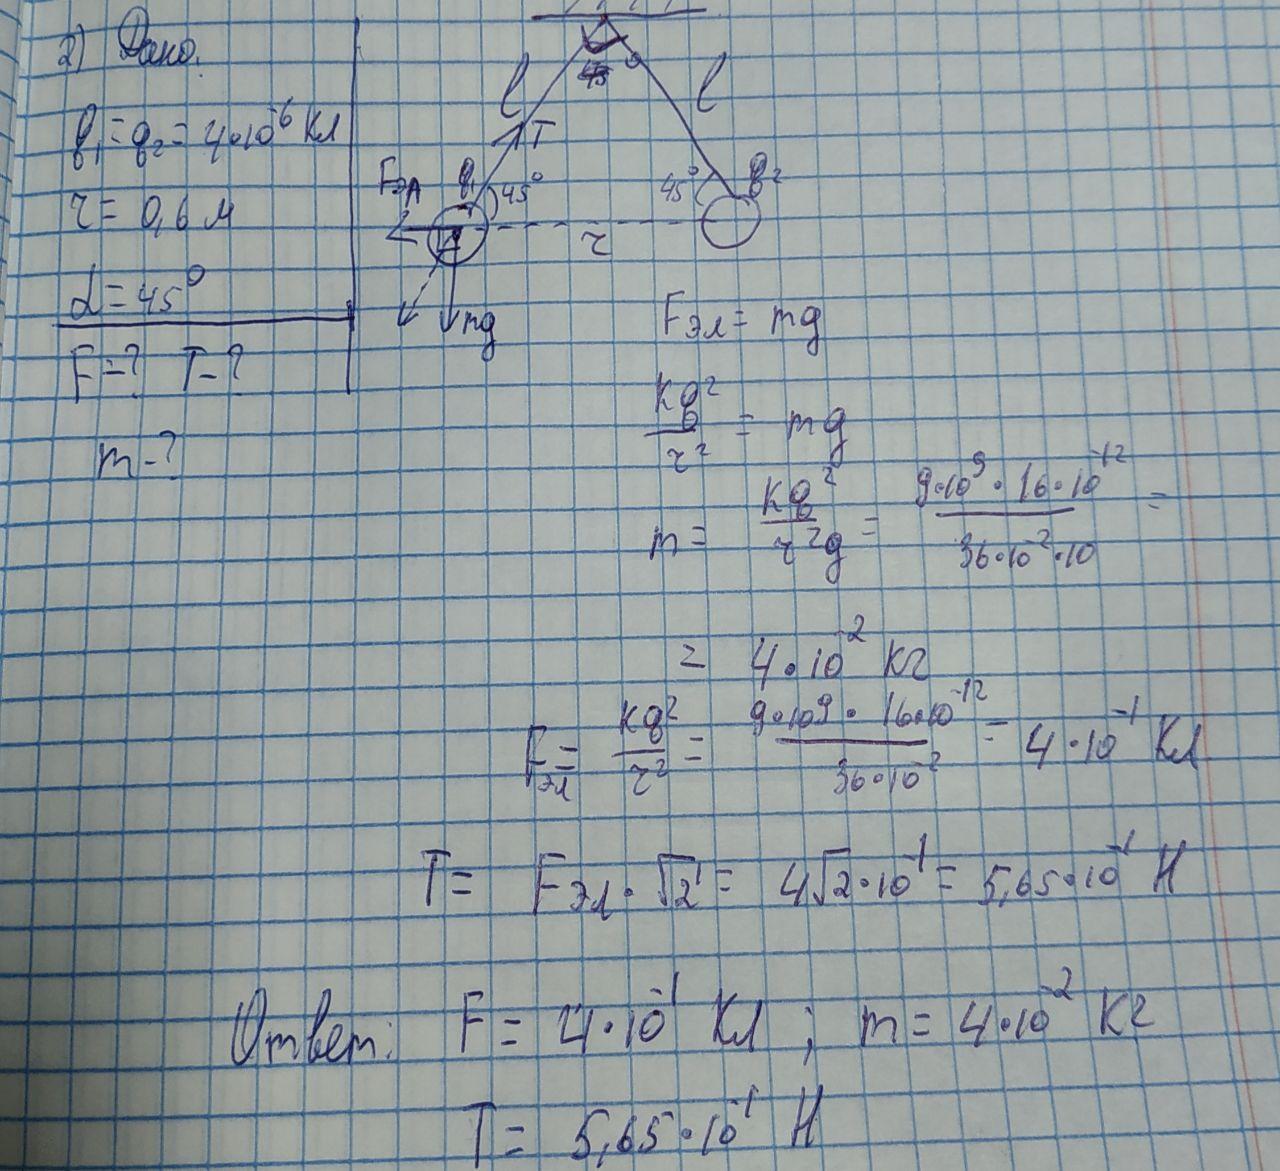 2) Дано:
q₁=q₂=4·10⁻⁶ Кл
r= 0,6 м
α=45°
F=? T-?
m-?
l l
T
Fэл q₁ 45° 45° q₂
r
mg
Fэл = mg
kq²/r² = mg
m= kq²/r²g = 9·10⁹·16·10⁻¹²/36·10⁻²·10 =
= 4·10⁻² кг
Fэл= kq²/r² = 9·10⁹·16·10⁻¹²/36·10⁻² = 4·10⁻¹ Кл
T= Fэл·√2 = 4√2·10⁻¹= 5,65·10⁻¹ Н
Ответ: F= 4·10⁻¹ Кл; m= 4·10⁻² кг
T= 5,65·10⁻¹ Н